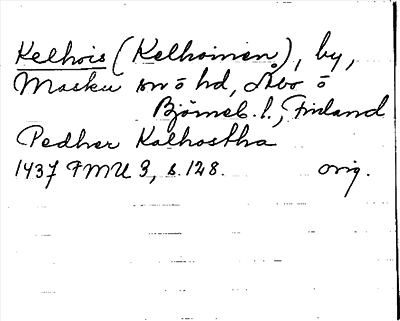 Kelhois (Kelhoinen), by,
Masku sn o hd, Åbo o
Björneb. l., Finland
Pedher Kalhostha
1437 FMU 3, s. 128. orig.